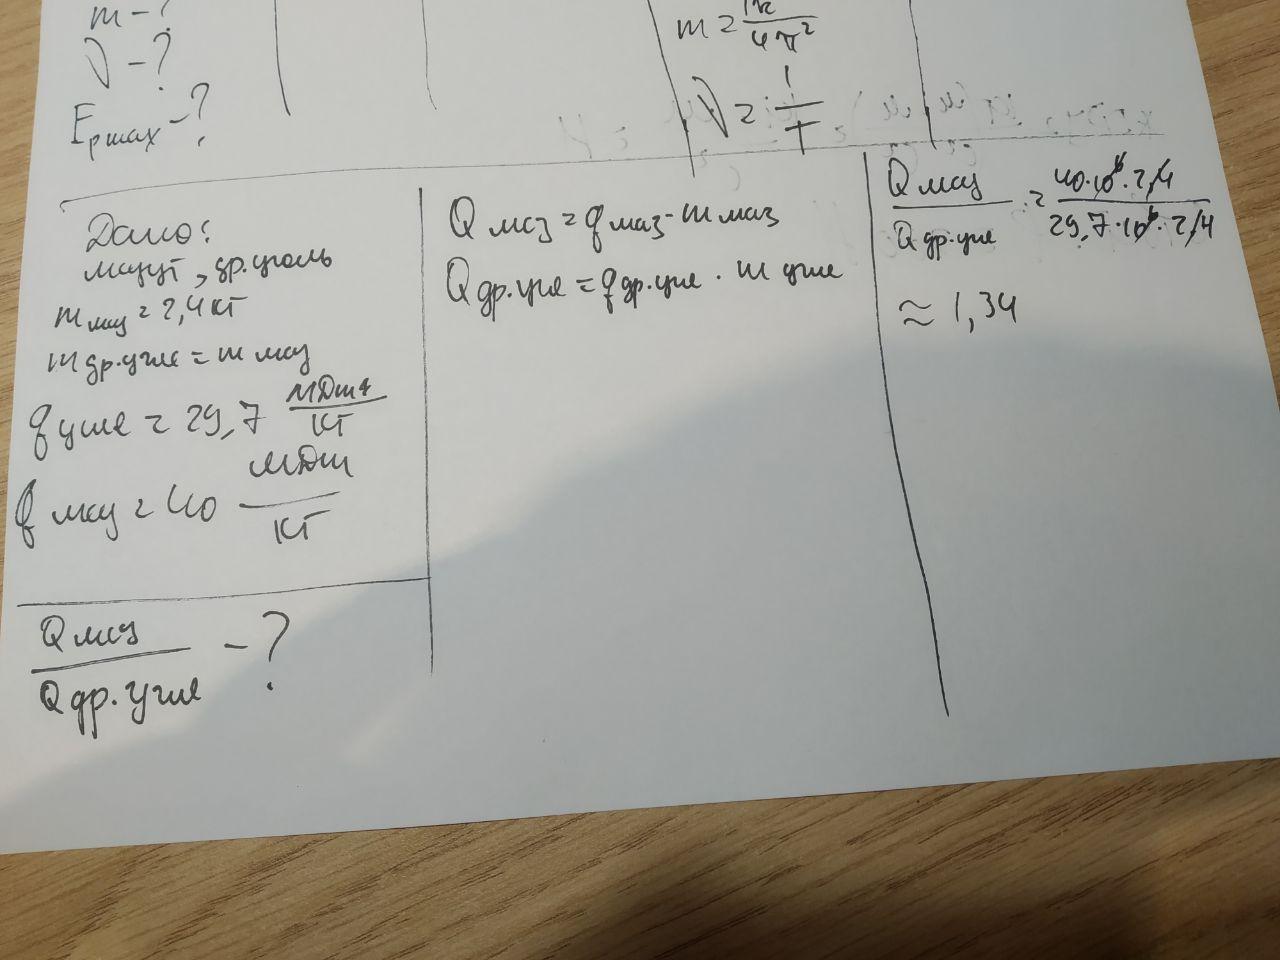 m - ?
ν - ?
Eр max - ?
m = Tk / 4π²
ν = 1 / T
Дано:
мазут, др.уголь
m маз = 2,4 кг
m др.угле = m маз
q угле = 29,7 МДж / кг
q маз = 40 МДж / кг
Q маз / Q др.угле - ?
Q маз = q маз · m маз
Q др.угле = q др.угле · m угле
Q маз / Q др.угле = 40·10⁶·2,4 / 29,7·10⁶·2,4
≈ 1,34